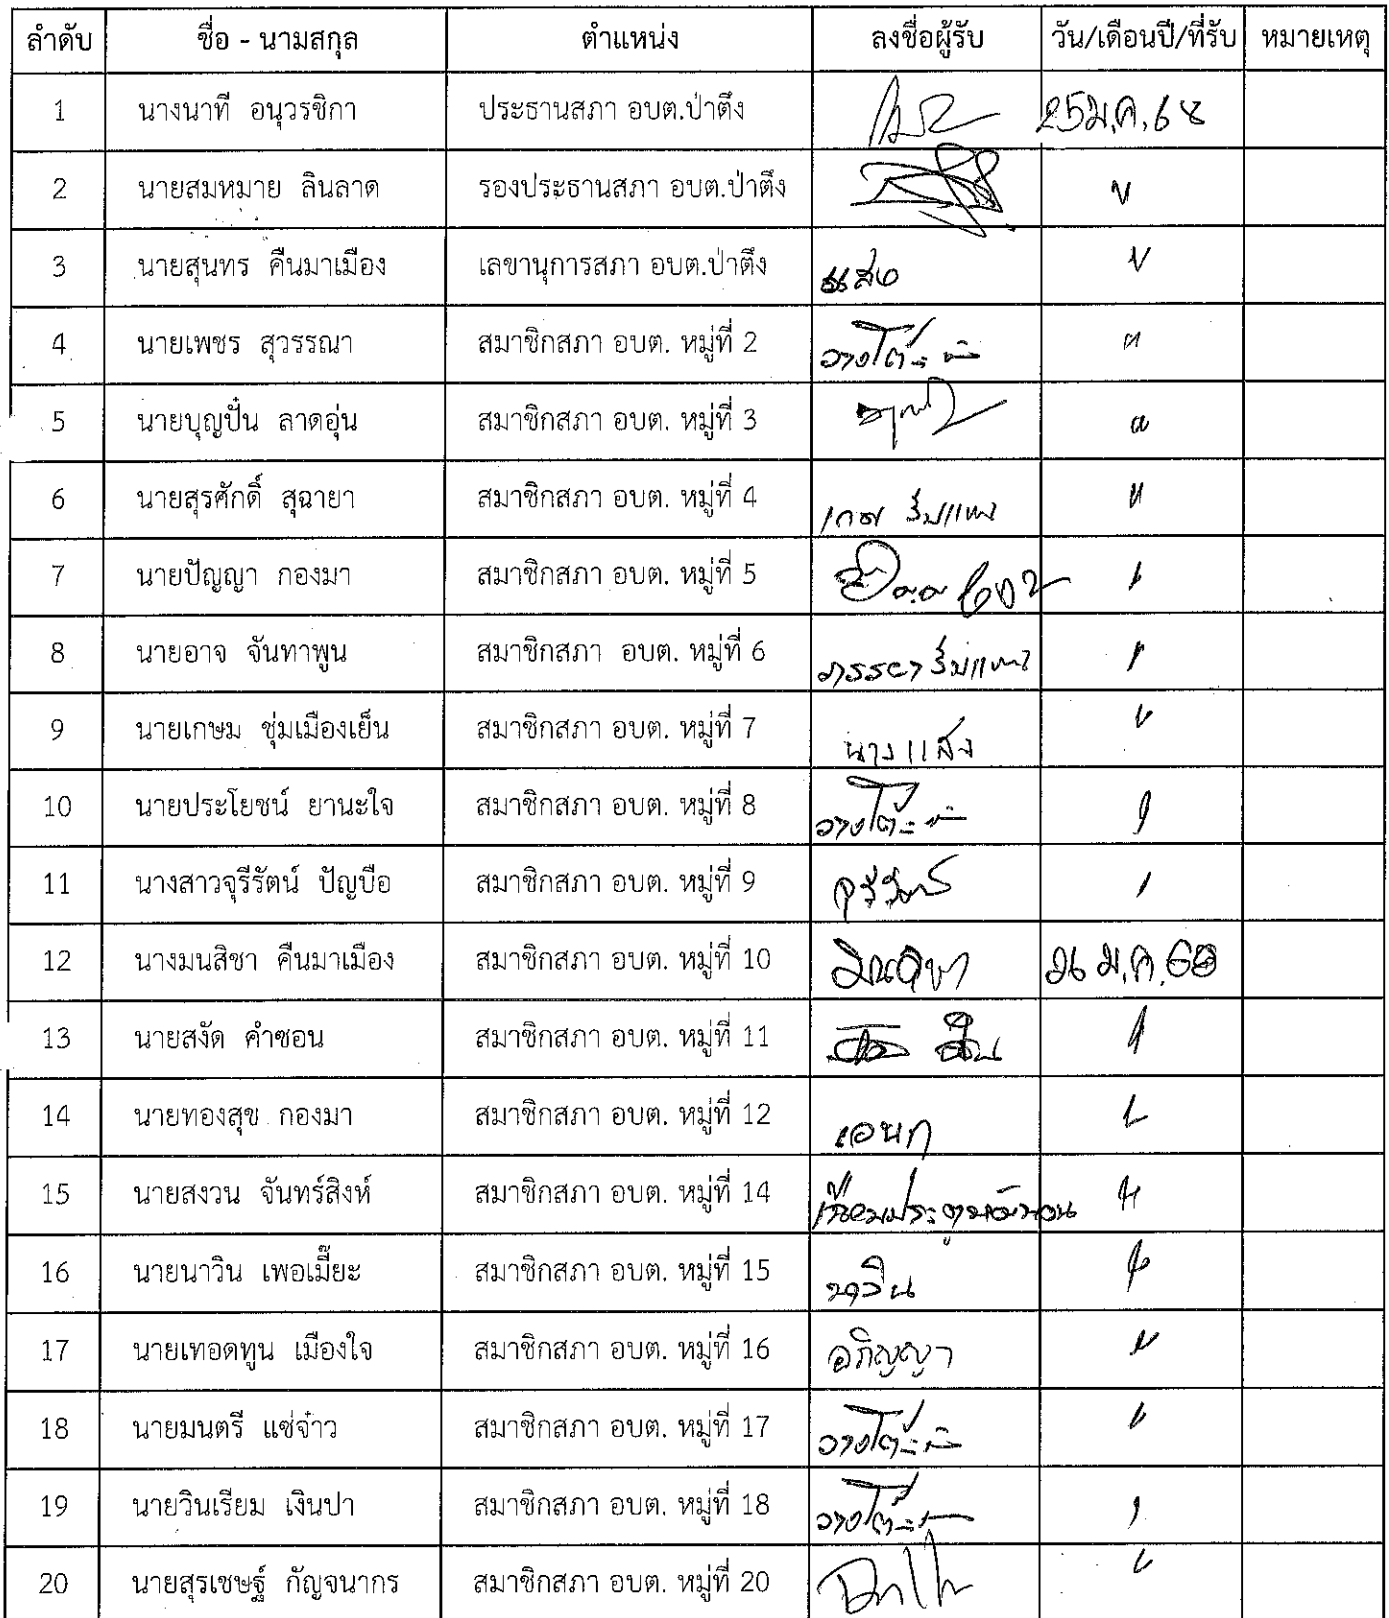 ลำดับ ชื่อ - นามสกุล ตำแหน่ง ลงชื่อผู้รับ วัน/เดือนปี/ที่รับ หมายเหตุ
1 นางนาที อนุวรชิกา ประธานสภา อบต.ป่าตึง 25 ม.ค. 68
2 นายสมหมาย ลินลาด รองประธานสภา อบต.ป่าตึง
3 นายสุนทร คืนมาเมือง เลขานุการสภา อบต.ป่าตึง
4 นายเพชร สุวรรณา สมาชิกสภา อบต. หมู่ที่ 2 วางโต๊ะ
5 นายบุญปั๋น ลาดอุ่น สมาชิกสภา อบต. หมู่ที่ 3
6 นายสุรศักดิ์ สุฉายา สมาชิกสภา อบต. หมู่ที่ 4 รับแทน
7 นายปัญญา กองมา สมาชิกสภา อบต. หมู่ที่ 5
8 นายอาจ จันทาพูน สมาชิกสภา อบต. หมู่ที่ 6 ภรรยา รับแทน
9 นายเกษม ชุ่มเมืองเย็น สมาชิกสภา อบต. หมู่ที่ 7
10 นายประโยชน์ ยานะใจ สมาชิกสภา อบต. หมู่ที่ 8 วางโต๊ะ
11 นางสาวจุรีรัตน์ ปัญบือ สมาชิกสภา อบต. หมู่ที่ 9 จุรีรัตน์
12 นางมนสิชา คืนมาเมือง สมาชิกสภา อบต. หมู่ที่ 10 26 ม.ค. 68
13 นายสงัด คำซอน สมาชิกสภา อบต. หมู่ที่ 11
14 นายทองสุข กองมา สมาชิกสภา อบต. หมู่ที่ 12 เอนก
15 นายสงวน จันทร์สิงห์ สมาชิกสภา อบต. หมู่ที่ 14
16 นายนาวิน เพอเมี๊ยะ สมาชิกสภา อบต. หมู่ที่ 15 นาวิน
17 นายเทอดทูน เมืองใจ สมาชิกสภา อบต. หมู่ที่ 16 อภิญญา
18 นายมนตรี แซ่จ๋าว สมาชิกสภา อบต. หมู่ที่ 17 วางโต๊ะ
19 นายวินเรียม เงินปา สมาชิกสภา อบต. หมู่ที่ 18 วางโต๊ะ
20 นายสุรเชษฐ์ กัญจนากร สมาชิกสภา อบต. หมู่ที่ 20